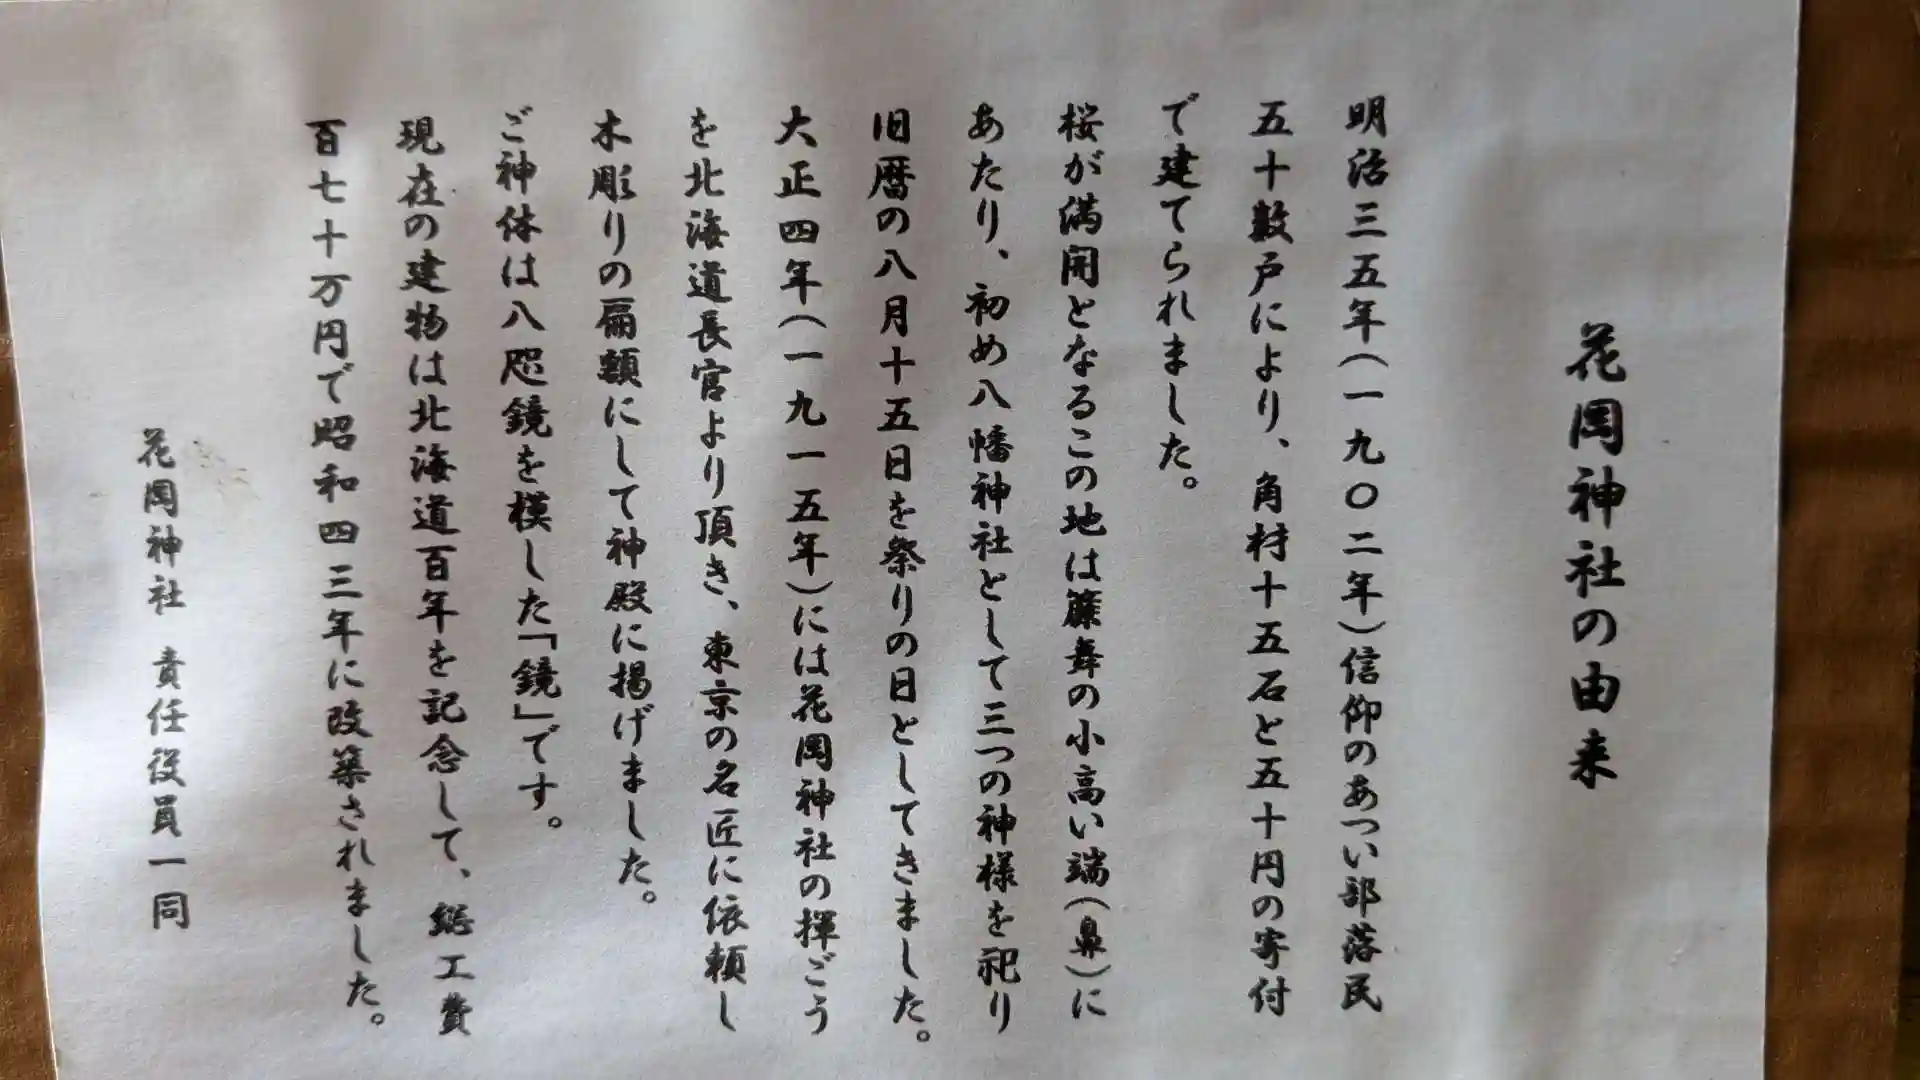 花岡神社の由来
明治三五年(一九〇二年)信仰のあつい部落民
五十数戸により、角村十五石と五十円の寄付
で建てられました。
桜が満開となるこの地は簾舞の小高い端(鼻)に
あたり、初め八幡神社として三つの神様を祀り
旧暦の八月十五日を祭りの日としてきました。
大正四年(一九一五年)には花岡神社の揮ごう
を北海道長官より頂き、東京の名匠に依頼し
木彫りの扁額にして神殿に掲げました。
ご神体は八咫鏡を模した「鏡」です。
現在の建物は北海道百年を記念して、総工費
百七十万円で昭和四三年に改築されました。
花岡神社 責任役員一同